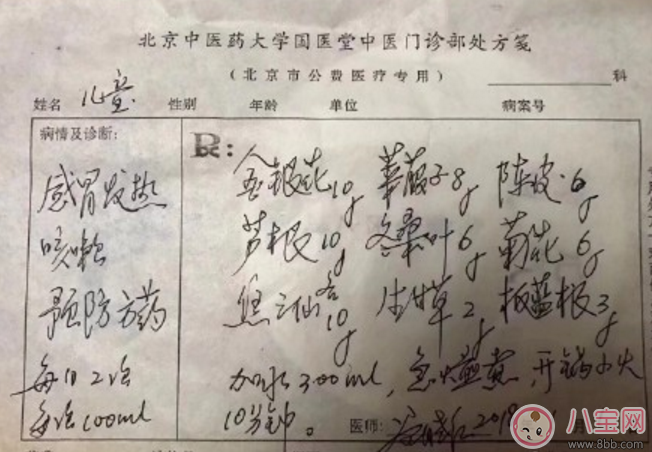 北京中医药大学国医堂中医门诊部处方笺
（北京市公费医疗专用）
科
姓名 儿童 性别 年龄 单位 病案号
病情及诊断：
感冒发热
咳嗽
预防方药
每日2次
每次100ml
R：
金银花10g 莱菔子8g 陈皮6g
芦根10g 冬桑叶6g 菊花6g
焦三仙各10g 生甘草2g 板蓝根3g
加水300ml，急火煎煮，开锅小火
10分钟。 医师： 2018
八宝网
www.8bb.com